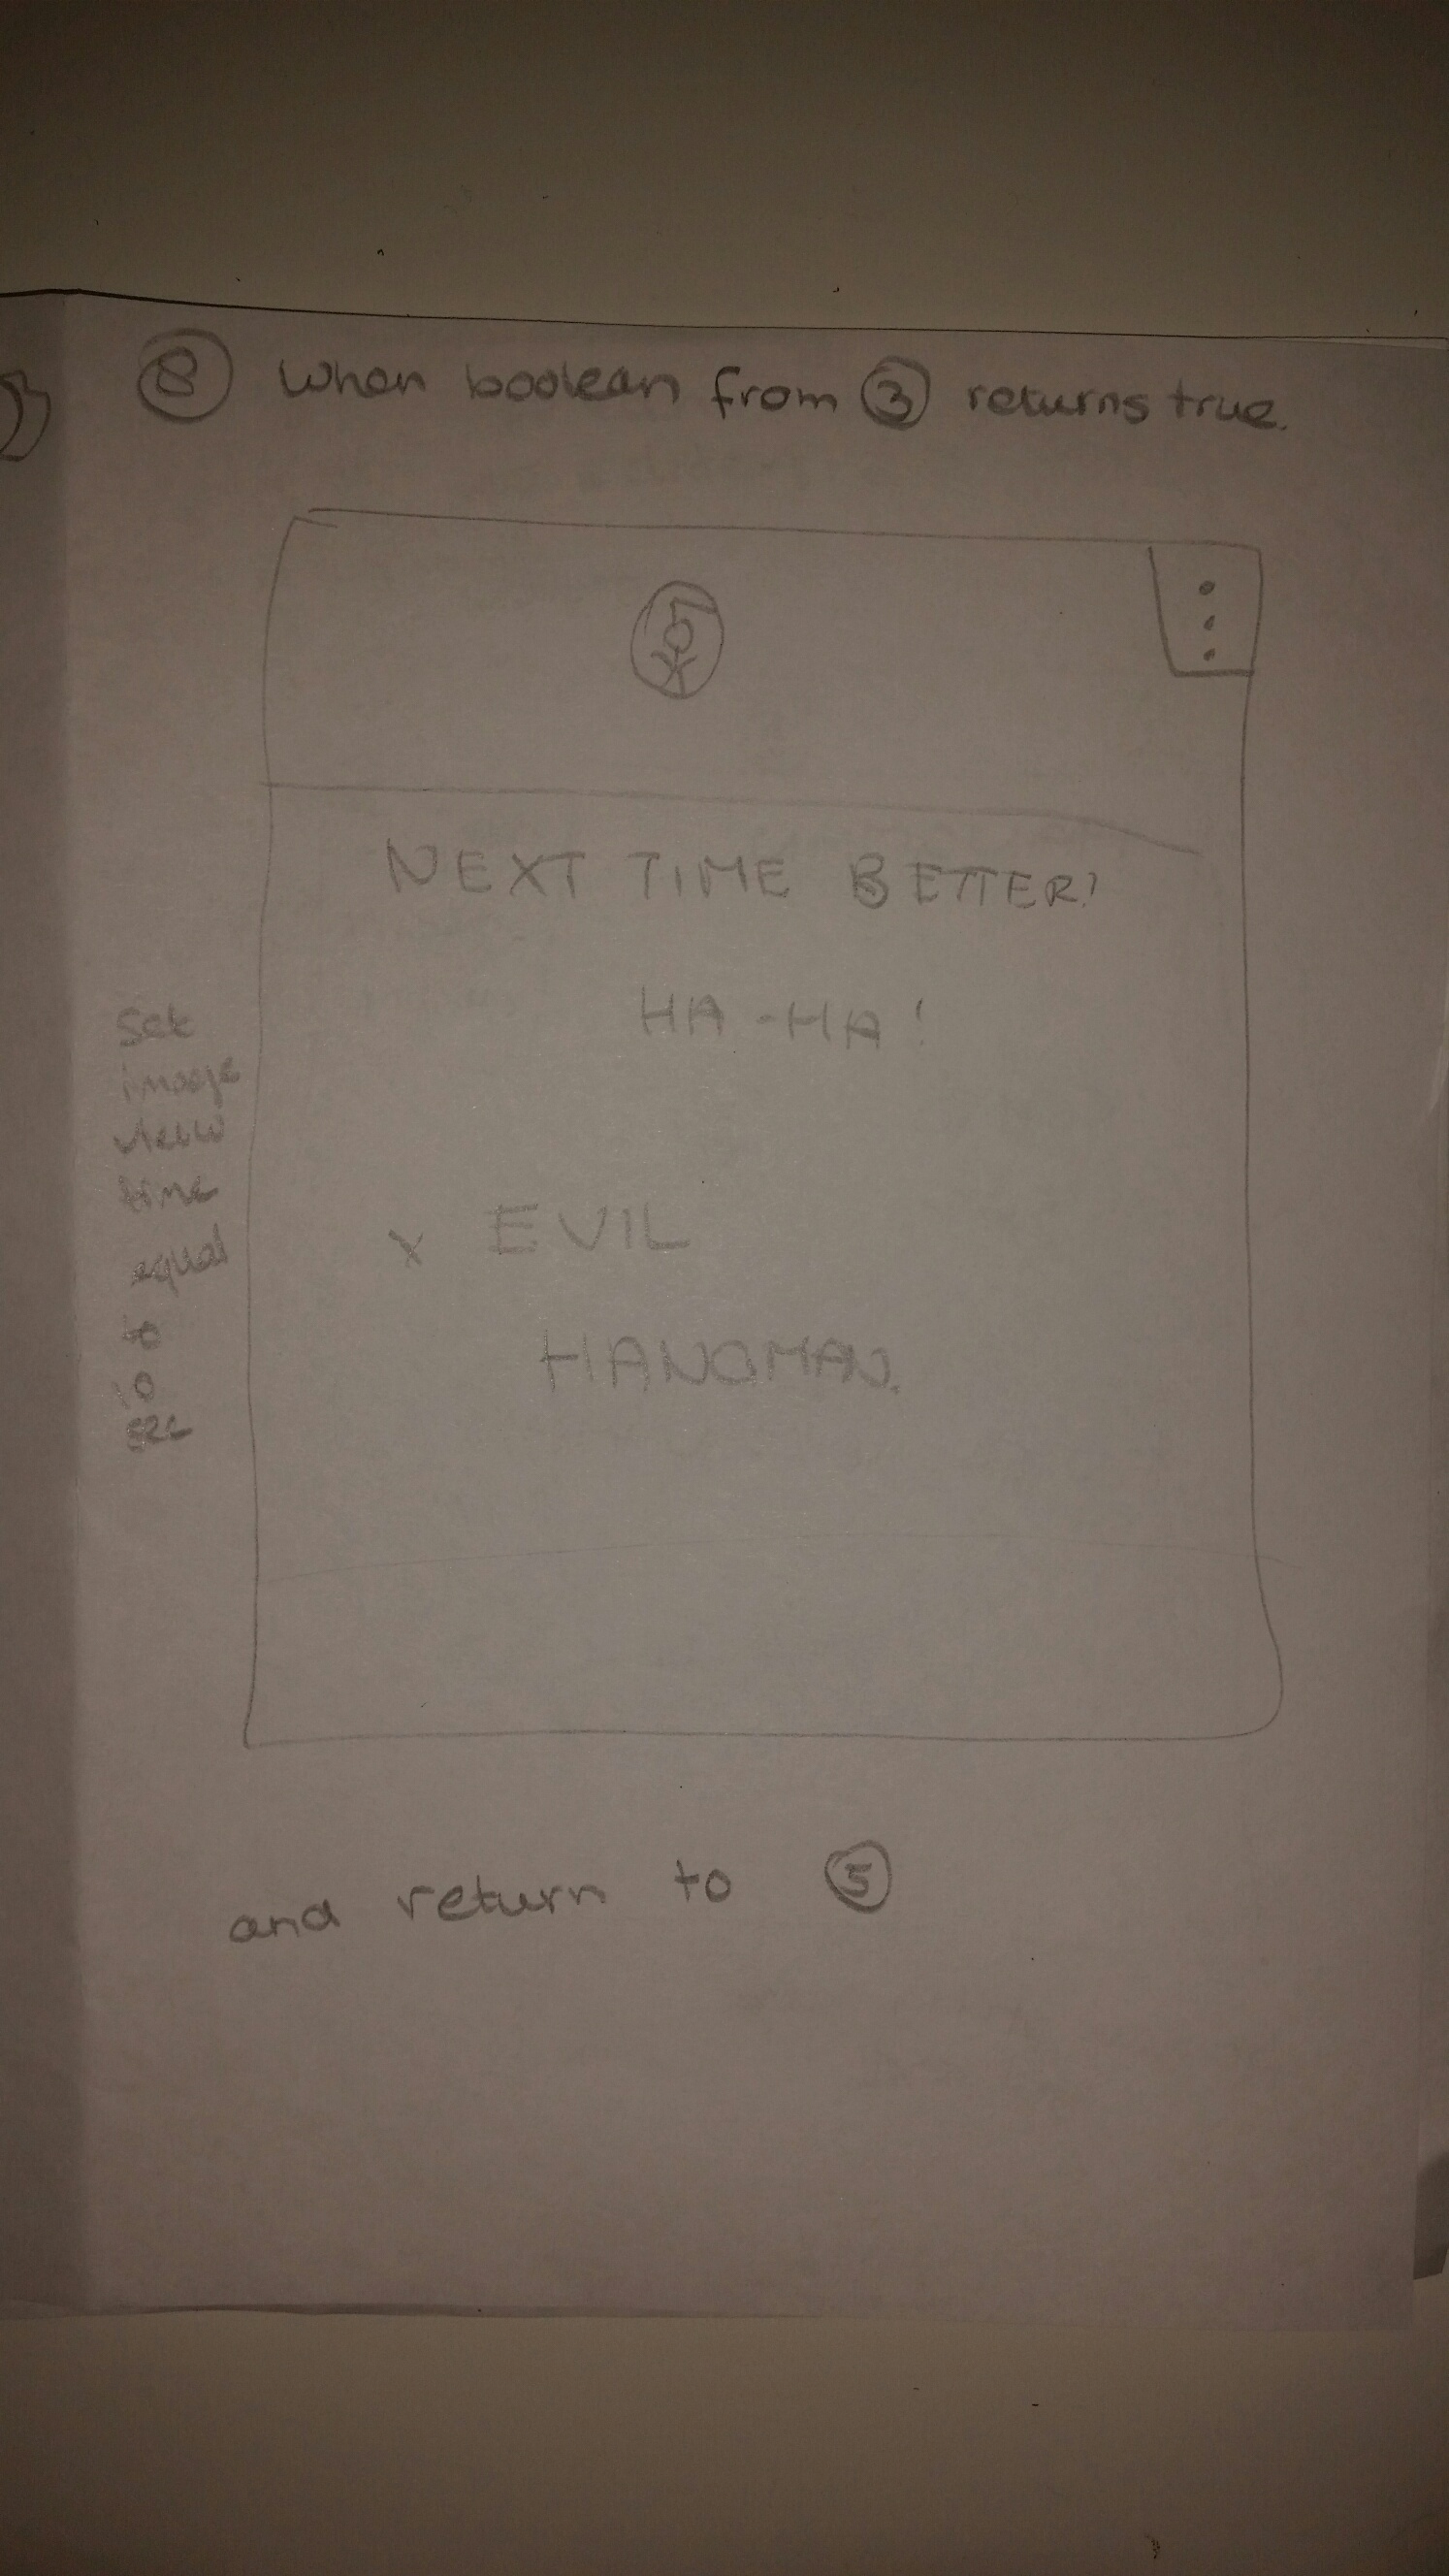 ⑧ When boolean from ③ returns true.
NEXT TIME BETTER!
HA-HA!
x EVIL
HANGMAN.
Set
image
view
time
equal
to
10
sec
and return to ⑤